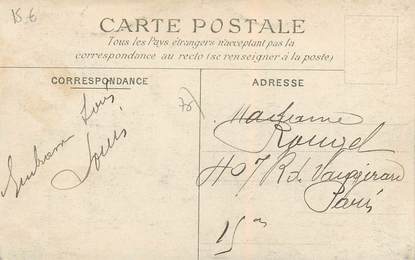 15 €
CARTE POSTALE
Tous les Pays étrangers n'acceptant pas la
correspondance au recto (se renseigner à la poste)
CORRESPONDANCE
ADRESSE
Louis
75)
Madame
Rouzel
407 R. d. Vaugirard
Paris
15e